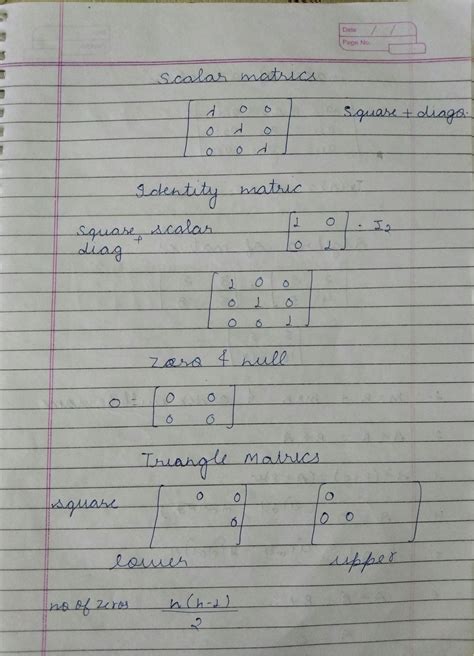 Date
Page No.
Scalar matrics
λ 0 0
0 λ 0
0 0 λ
Square + diago.
Identity matric
square + scalar
diag
1 0
0 1
= I2
1 0 0
0 1 0
0 0 1
Zero & null
0 = 0 0
0 0
Triangle Matrics
square
0 0
0
0
0 0
lower
upper
no of zeros n(n-1)
2